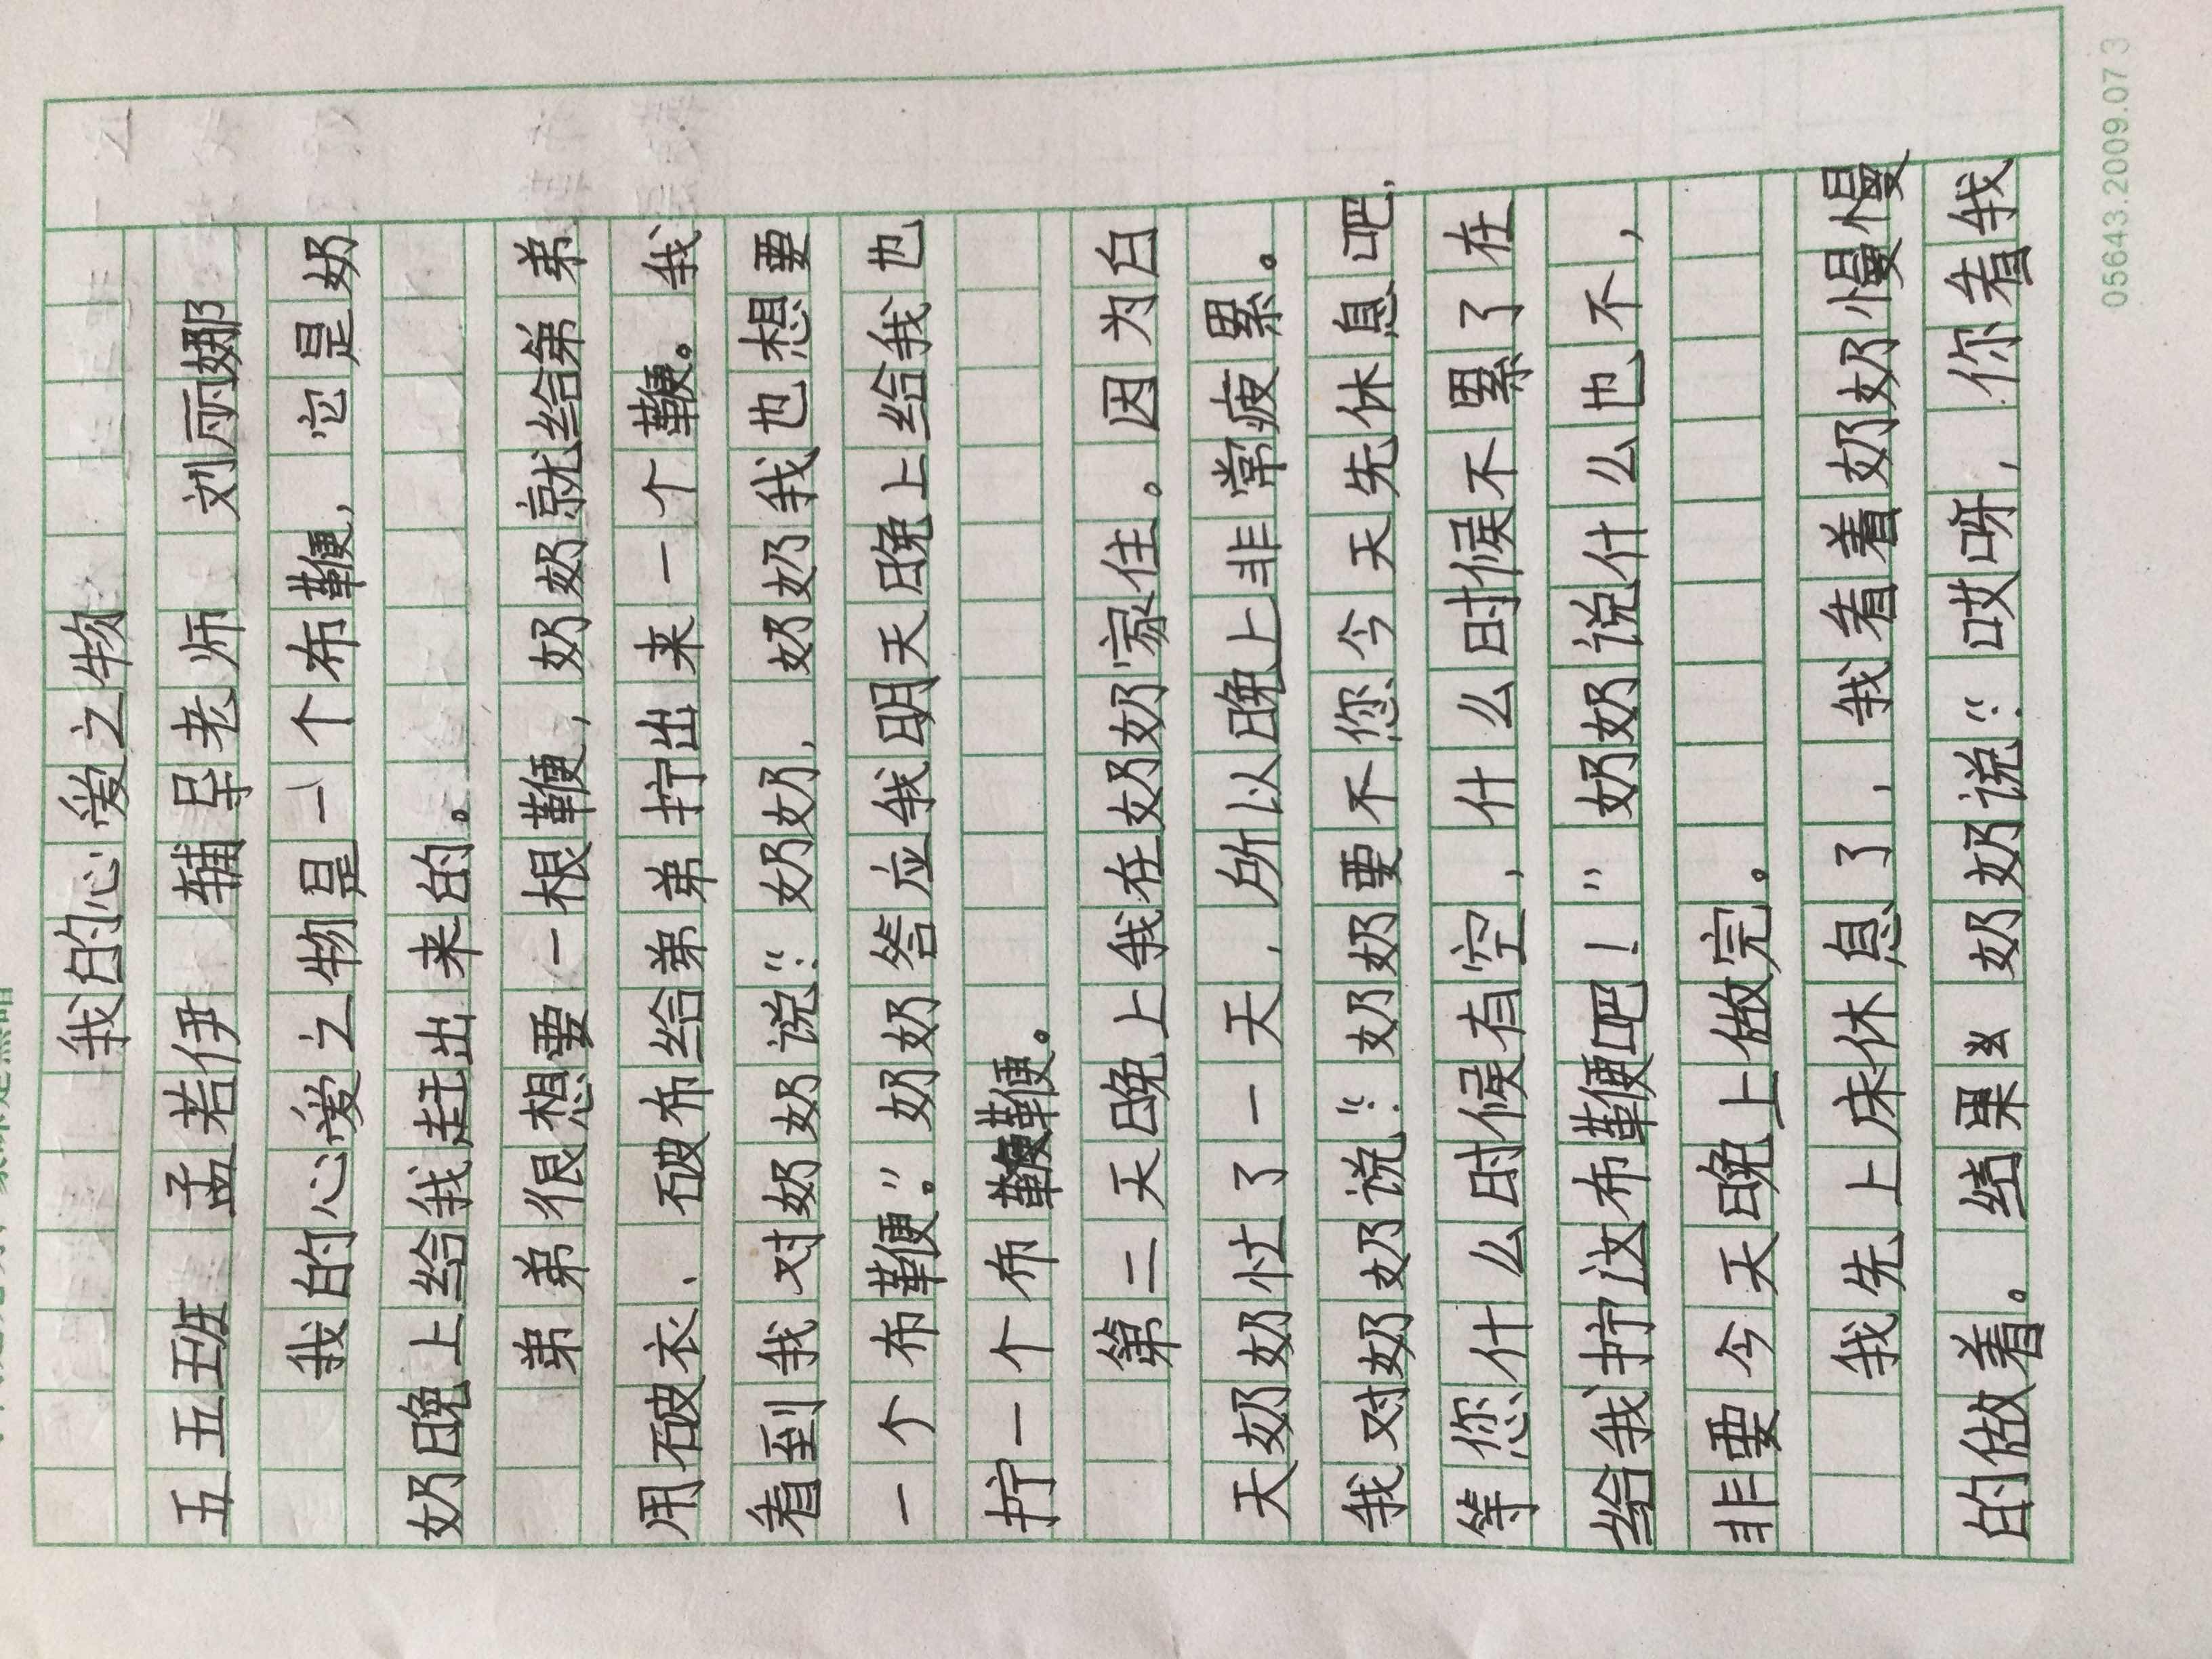 我的心爱之物
五五班 孟若伊 辅导老师 刘丽娜
我的心爱之物是一个布鞭，它是奶
奶晚上给我赶出来的。
弟弟很想要一根鞭，奶奶就给弟弟
用破衣、破布给弟弟拧出来一个鞭。我
看到我对奶奶说：“奶奶，奶奶我也想要
一个布鞭。”奶奶答应我明天晚上给我也
拧一个布鞭。
第二天晚上我在奶奶家住。因为白
天奶奶忙了一天，所以晚上非常疲累。
我对奶奶说：“奶奶要不您今天先休息吧，
等您什么时候有空，什么时候不累了在
给我拧这布鞭吧！”奶奶说什么也不，
非要今天晚上做完。
我先上床休息了，我看着奶奶慢慢
的做着。结果奶奶说：“哎呀，你看我
05643.2009.073